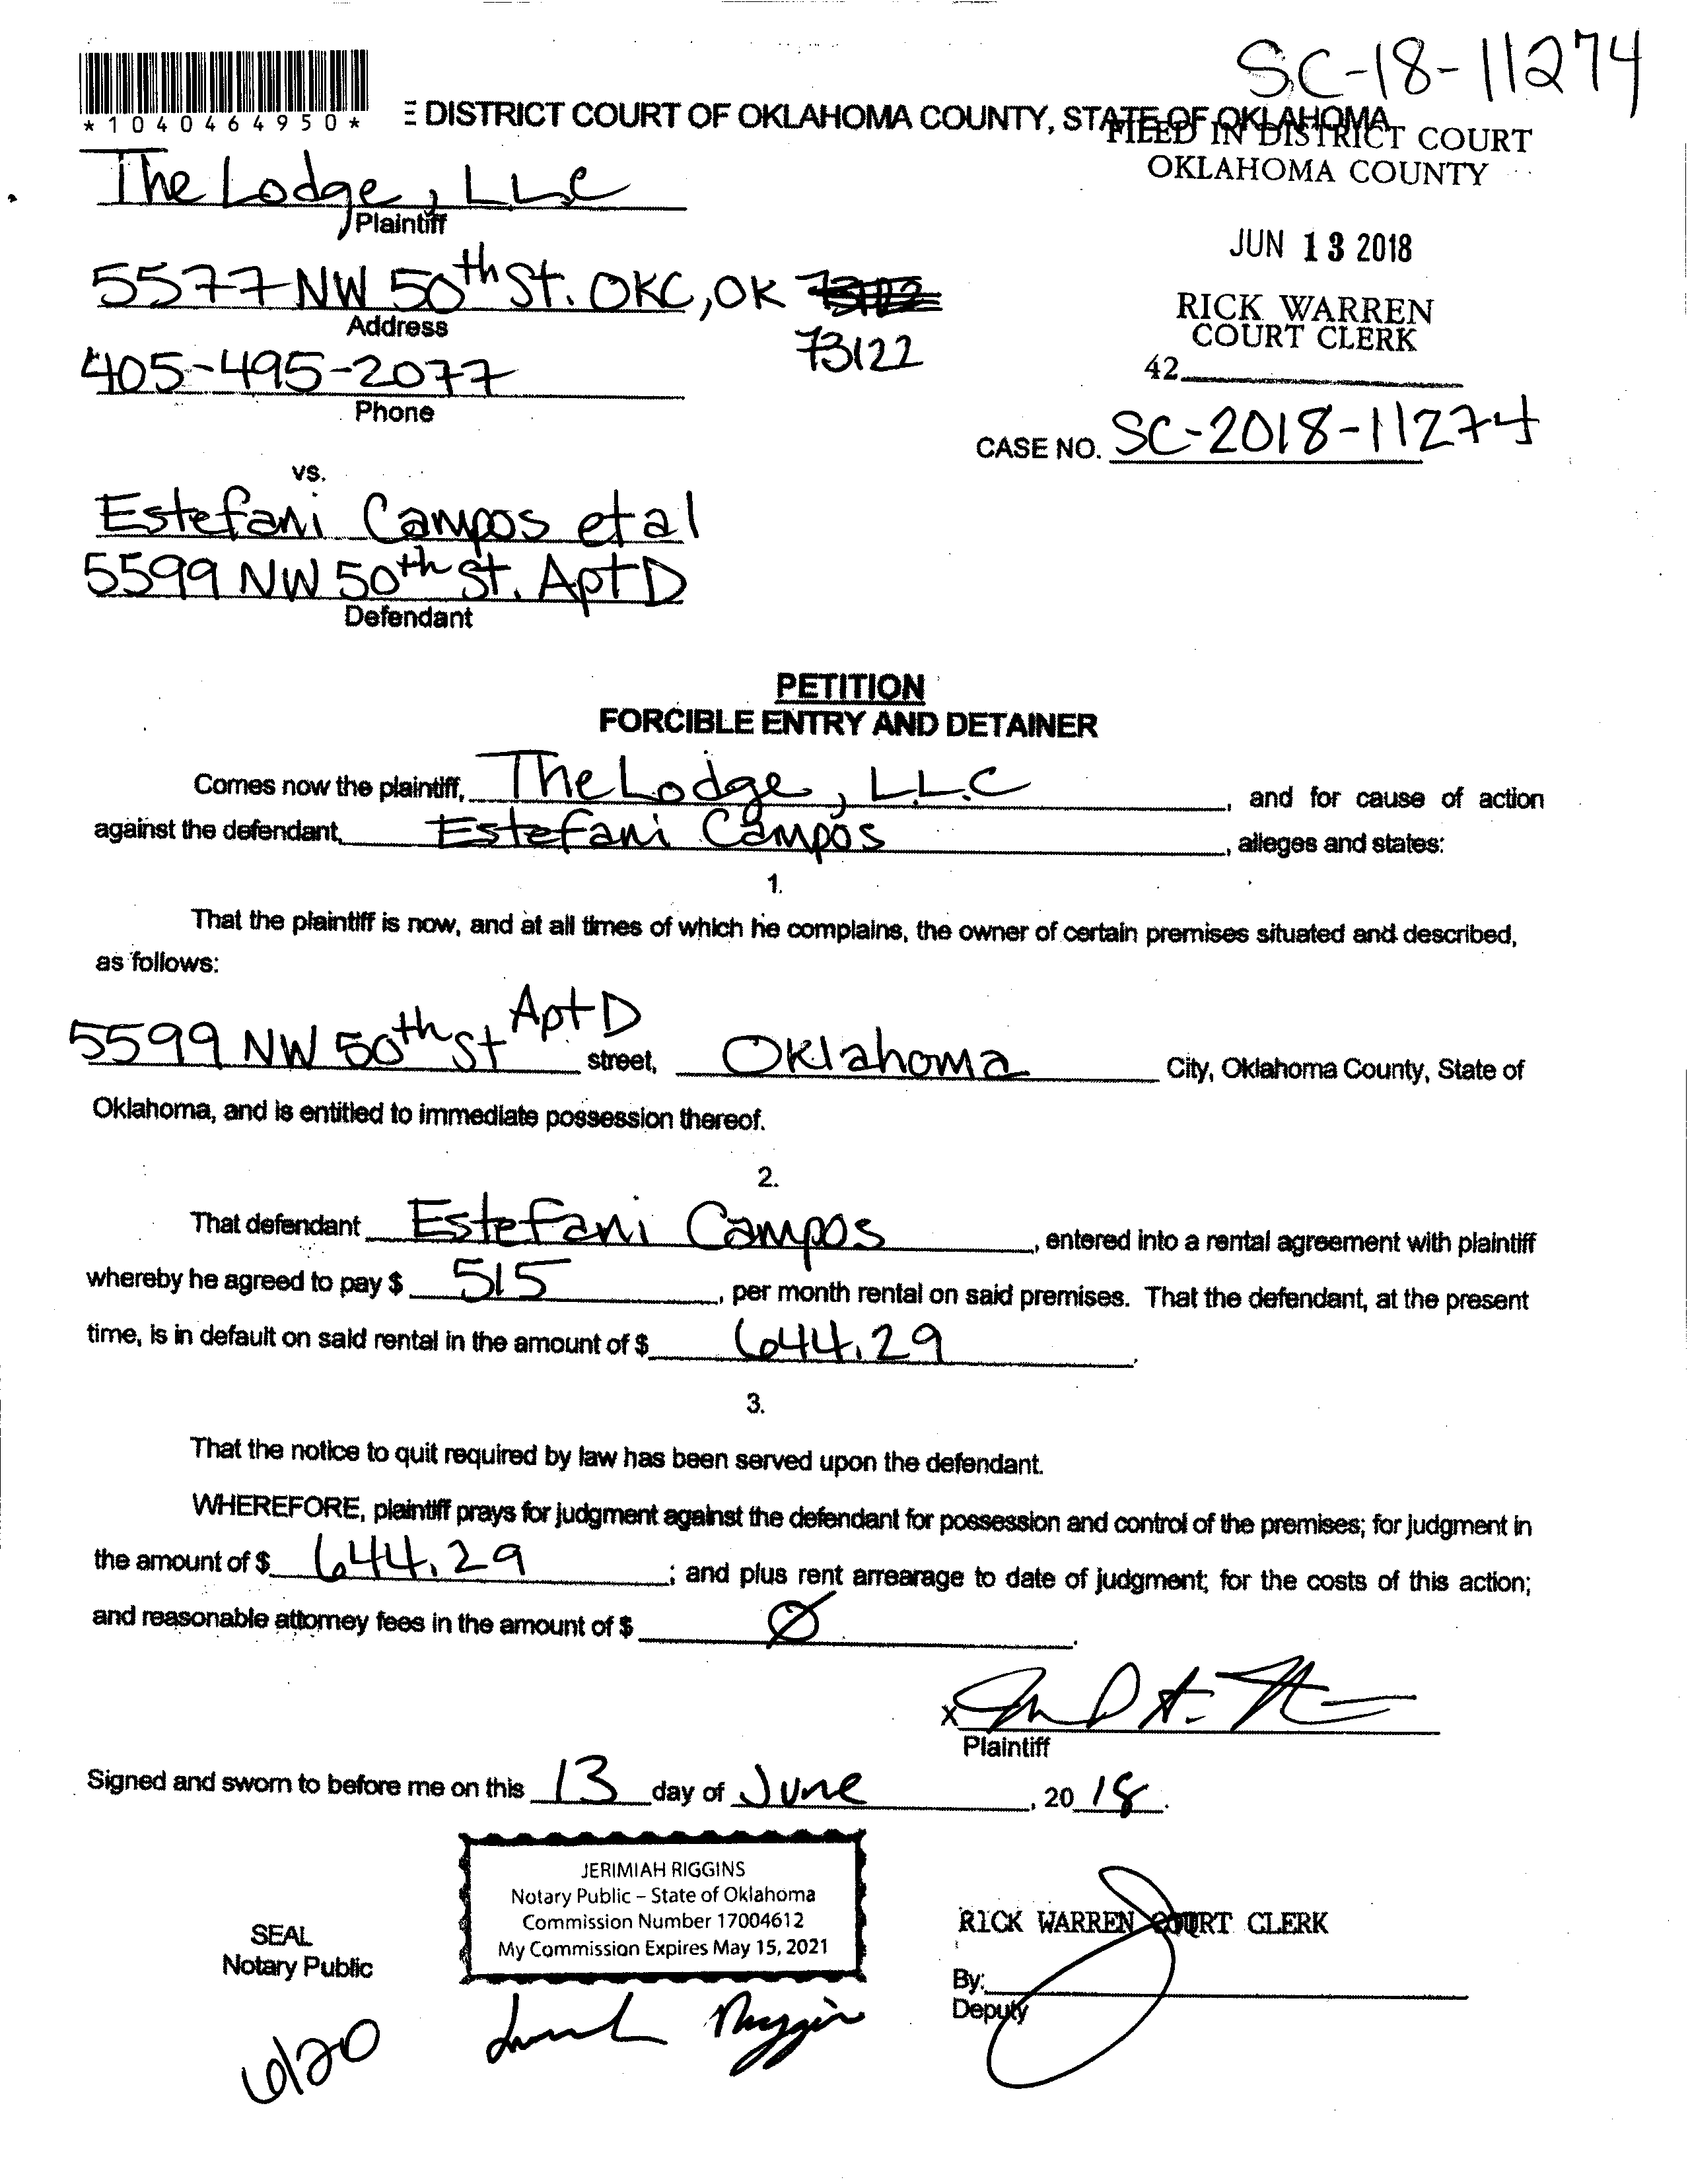 SC-18-11274
*1040464950*
E DISTRICT COURT OF OKLAHOMA COUNTY, STATE OF OKLAHOMA
FILED IN DISTRICT COURT
OKLAHOMA COUNTY
JUN 13 2018
RICK WARREN
COURT CLERK
42
The Lodge, LLC
Plaintiff
5577 NW 50th St. OKC, OK
73122
Address
405-495-2077
Phone
CASE NO. SC-2018-11274
vs.
Estefani Campos et al
5599 NW 50th St. Apt D
Defendant
PETITION
FORCIBLE ENTRY AND DETAINER
Comes now the plaintiff, The Lodge, LLC, and for cause of action
against the defendant, Estefani Campos, alleges and states:
1.
That the plaintiff is now, and at all times of which he complains, the owner of certain premises situated and described,
as follows:
5599 NW 50th St Apt D street, Oklahoma City, Oklahoma County, State of
Oklahoma, and is entitled to immediate possession thereof.
2.
That defendant Estefani Campos, entered into a rental agreement with plaintiff
whereby he agreed to pay $ 515, per month rental on said premises. That the defendant, at the present
time, is in default on said rental in the amount of $ 644.29.
3.
That the notice to quit required by law has been served upon the defendant.
WHEREFORE, plaintiff prays for judgment against the defendant for possession and control of the premises; for judgment in
the amount of $ 644.29; and plus rent arrearage to date of judgment; for the costs of this action;
and reasonable attorney fees in the amount of $ Ø.
x
Plaintiff
Signed and sworn to before me on this 13 day of June, 2018.
JERIMIAH RIGGINS
Notary Public – State of Oklahoma
Commission Number 17004612
My Commission Expires May 15, 2021
SEAL
Notary Public
RICK WARREN COURT CLERK
By:
Deputy
6/20